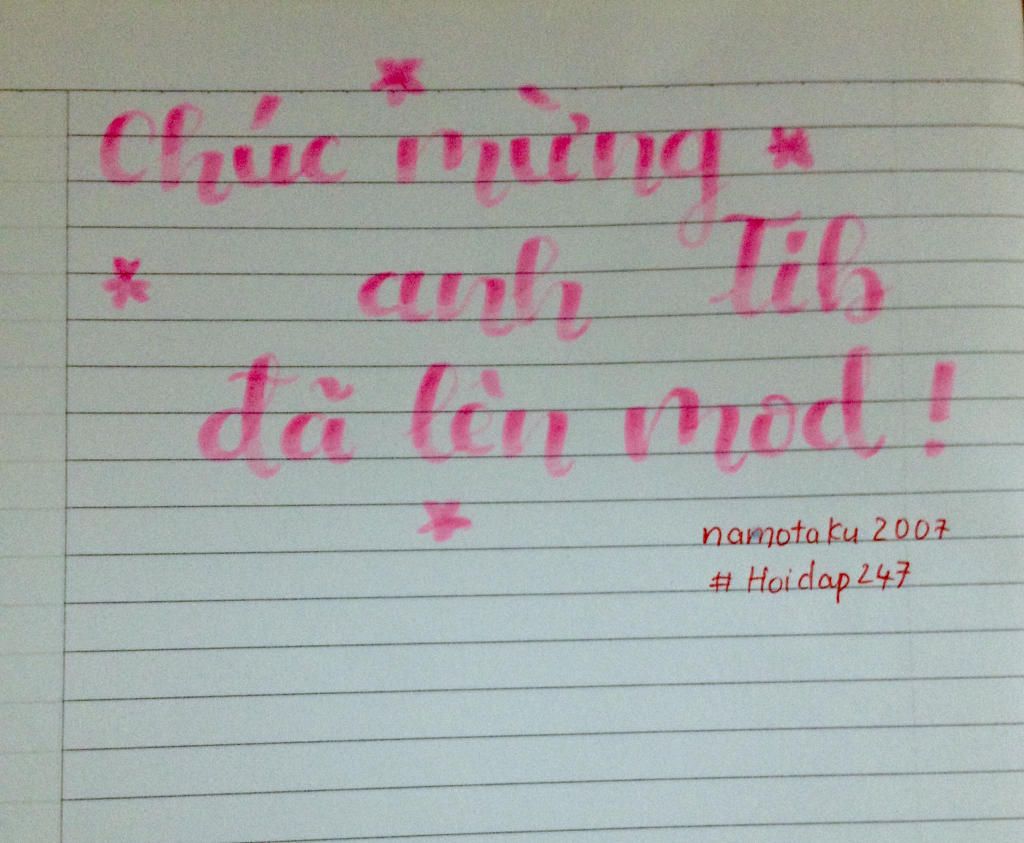 Chúc mừng
anh Tib
đã lên mod !
namotaku 2007
# Hoidap247